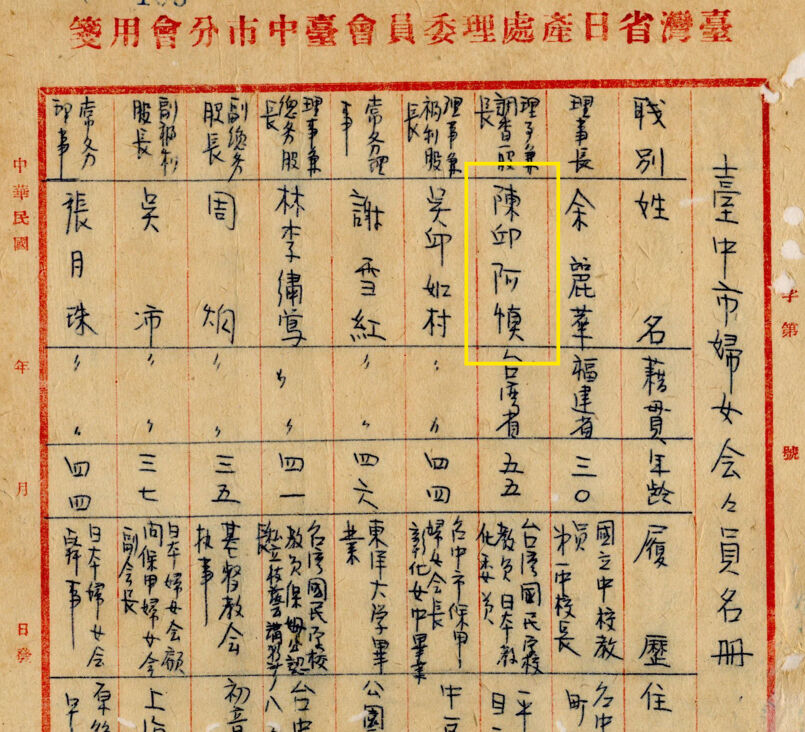 箋用會分市中臺會員委理處產日省灣臺
臺中市婦女会々員名冊
職別 姓名 藉貫 年齡 履歷 住
理事長 余麗華 福建省 三〇 國立中校教員 第一中校長 台中 町
理事兼調查股長 陳邱阿慎 台湾省 五五 台湾國民学校教員 日本教化委員
理事兼福利股長 吳邱如村 〃〃 四四 台中市保甲婦女会長 彰化女中畢業
常务理事 謝雪紅 〃〃 四六 東洋大学畢業 公園
理事兼總务股長 林李繡鸞 〃〃 四一 台湾國民学校教員 保姆 台中
副總务股長 周炯 〃〃 三五 基督教会執事 初音
副福利股長 吳沛 〃〃 三七 日本婦女会顧问 保甲婦女会副会長 上
常务理事 張月珠 〃〃 四四 日本婦女会幹事
中華民國 年 月 日發
字第 號